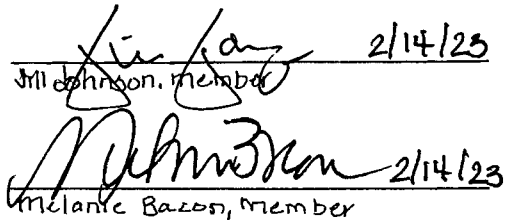 2/14/23
Jill Johnson, member
2/14/23
Melanie Bacon, member